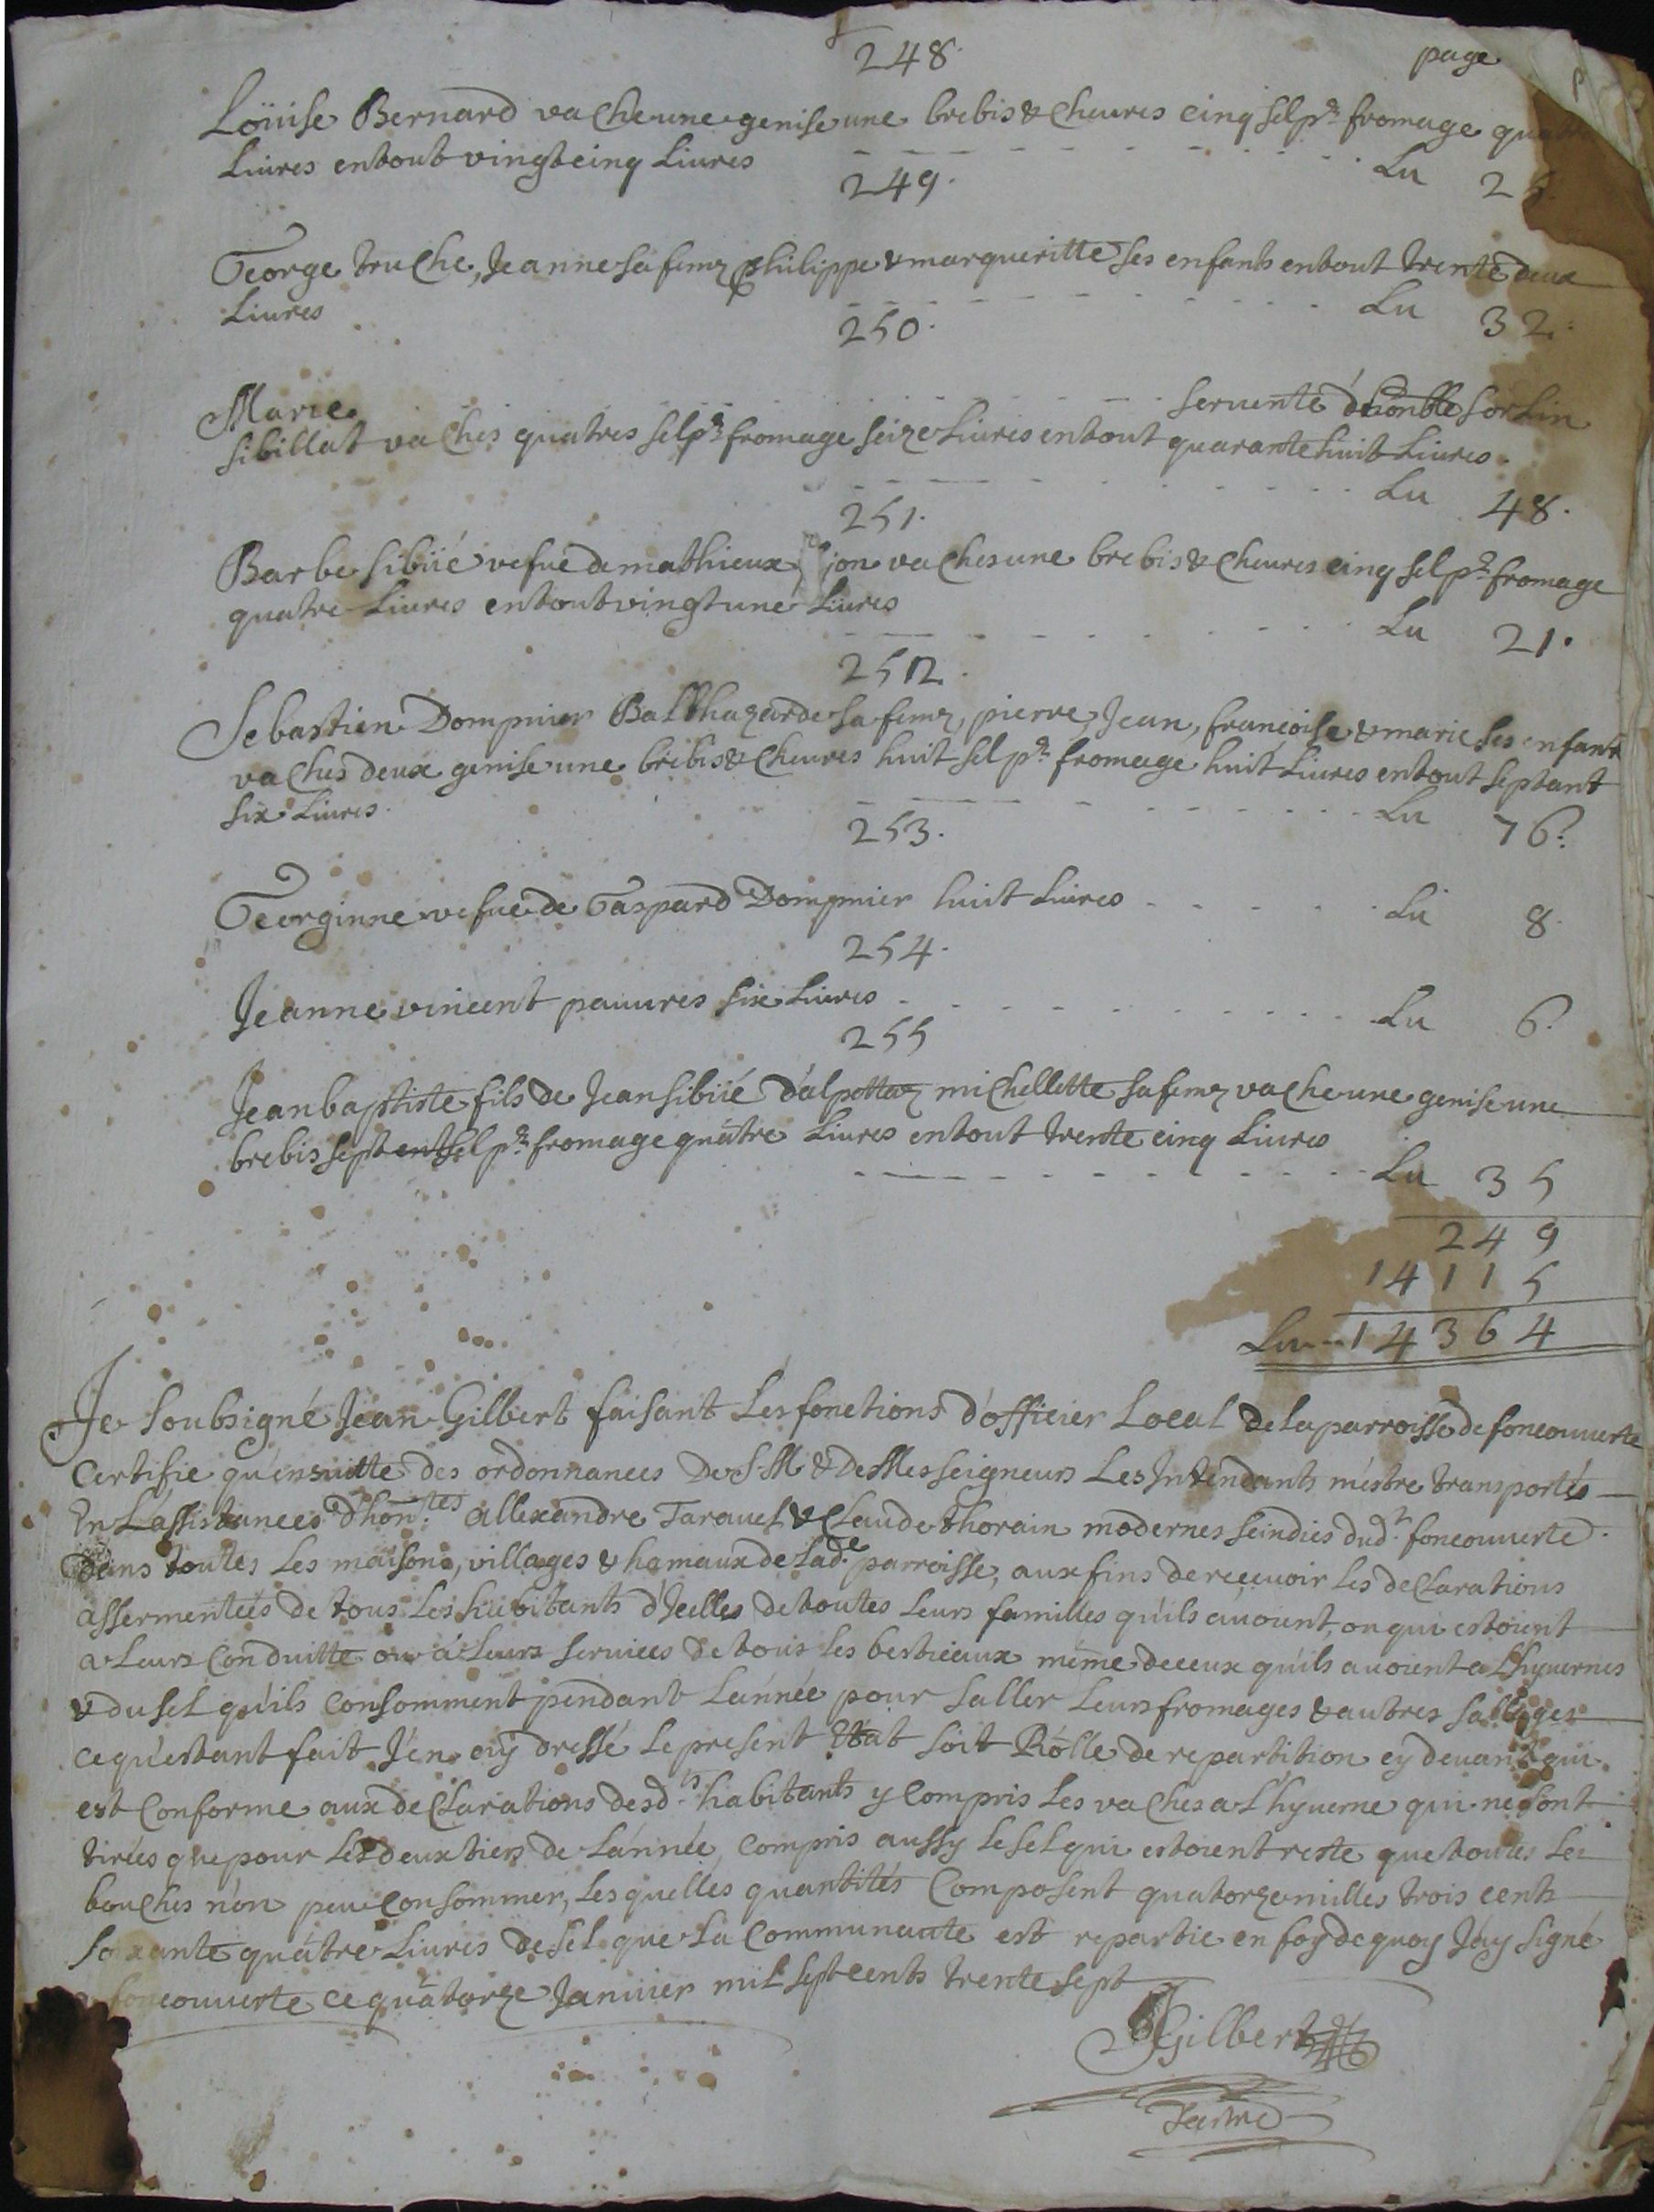 248. page
Loüise Bernard vache une genise une brebis & cheures cinq sel pr fromage quatre
Liures en tout vingt cinq Liures - - - Lu 25.
249.
George truche, Jeanne sa feme Philippe & margueritte ses enfants en tout trente deux
Liures - - - Lu 32.
250.
Marie - - - seruente d'honble sorlin
sibillat vaches quatres sel pr fromage seize Liures en tout quarante huit Liures.
- - - Lu 48.
251.
Barbe sibiié vefue de mathieux vaches une brebis & cheures cinq sel pr fromage
quatre Liures en tout vingt une Liures - - - Lu 21.
252.
Sebastien Dompnier Balthazarde sa feme, pierre, Jean, francoise & marie ses enfants
vaches deux genise une brebis & cheures huit sel pr fromage huit Liures en tout septant
six Liures. - - - Lu 76.
253.
Georginne vefue de Gaspard Dompnier huit Liures - - - Lu 8.
254.
Jeanne vincent pauures six Liures - - - Lu 6.
255
Jean baptiste fils de Jean sibiié d'alpettaz michellette sa feme vache une genise une
brebis sept sel pr fromage quatre Liures en tout trente cinq Liures
- - - Lu 35
249
14115
Lu -- 14364
Je soubsigné Jean Gilbert faisant Les fonctions d'officier Local de la parroisse de foncouuerte
Certifie qu'ensuitte des ordonnances De S. M. & De Messeigneurs Les Intendants m'estre transportés
En L'assistances d'hon.tes allexandre Tarauel & Claude thorain modernes scindics dud.t foncouuerte.
Dans toutes Les maisons, villages & hamaux de lad.e parroisse, aux fins de receuoir les declarations
assermentées de tous Les habitants d'Icelles de toutes Leurs familles qu'ils auoient, ou qui estoient
a Leurs Conduitte ou á Leurs seruices de tous les bestieaux même de ceux qu'ils auoient a L'hyuernes
& du sel qu'ils Consomment pendant L'année pour saller Leurs fromages & autres sallages
ce qu'estant fait J'en ay dressé le present Etat soit Rôlle de repartition cy deuant qui
est Conforme aux declarations desd.ts habitants y Compris Les vaches a L'hyuerne qui ne sont
tirées que pour Les deux tiers de L'année, Compris aussy Le sel qui estoient reste que toutes Les
bouches n'on peu Consommer, Lesquelles quantités Composent quatorze milles trois cents
soixante quâtre Liures de sel que La Communaute est repartie en foy de quoy J'ay signé
foncouuerte ce quatorze Januier mil sept cents trente sept
JGilbert